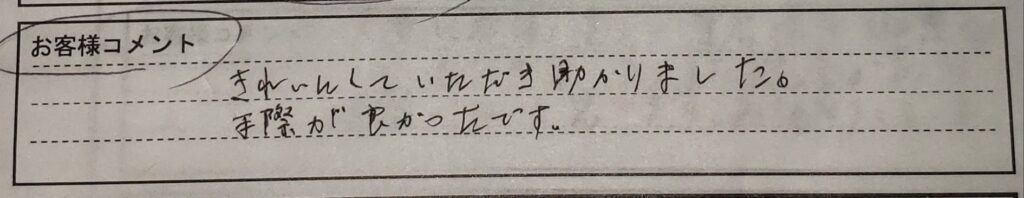 お客様コメント
きれいにしていただき助かりました。
手際が良かったです。